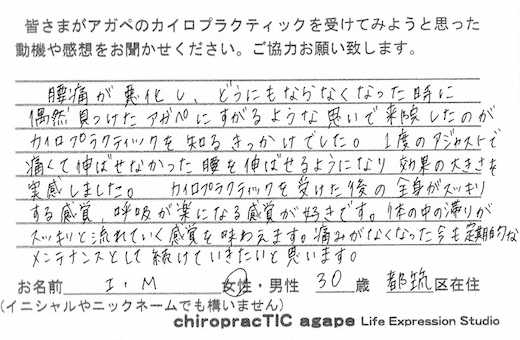 皆さまがアガペのカイロプラクティックを受けてみようと思った
動機や感想をお聞かせください。ご協力お願い致します。
腰痛が悪化し、どうにもならなくなった時に
偶然見つけたアガペにすがるような思いで来院したのが
カイロプラクティックを知るきっかけでした。1度のアジャストで
痛くて伸ばせなかった腰を伸ばせるようになり効果の大きさを
実感しました。カイロプラクティックを受けた後の全身がスッキリ
する感覚、呼吸が楽になる感覚が好きです。体の中の滞りが
スッキリと流れていく感覚を味わえます。痛みがなくなった今も定期的な
メンテナンスとして続けていきたいと思います。
お名前 I・M 女性・男性 30歳 都筑区在住
(イニシャルやニックネームでも構いません)
chiropracTIC agape Life Expression Studio